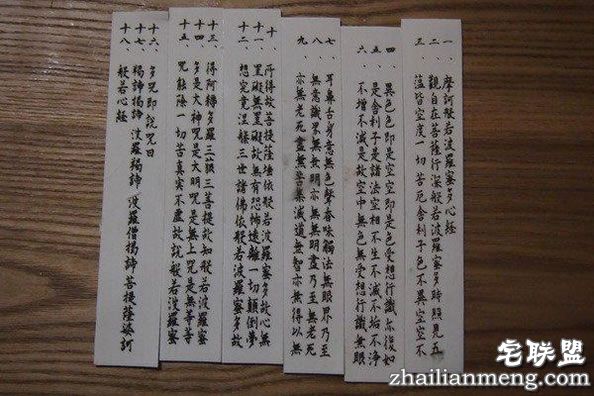 一、摩訶般若波羅蜜多心経
二、觀自在菩薩行深般若波羅蜜多時照見五
三、蘊皆空度一切苦厄舎利子色不異空空不
四、異色色即是空空即是色受想行識亦復如
五、是舎利子是諸法空相不生不滅不垢不淨
六、不增不減是故空中無色無受想行識無眼
七、耳鼻舌身意無色聲香味觸法無眼界乃至
八、無意識界無無明亦無無明盡乃至無老死
九、亦無老死盡無苦集滅道無智亦無得以無
十、所得故菩提薩埵依般若波羅蜜多故心無
十一、罣礙無罣礙故無有恐怖遠離一切顛倒夢
十二、想究竟涅槃三世諸佛依般若波羅蜜多故
十三、得阿耨多羅三藐三菩提故知般若波羅蜜
十四、多是大神呪是大明呪是無上呪是無等等
十五、呪能除一切苦真実不虚故説般若波羅蜜
十六、多呪即説呪曰
十七、羯諦羯諦 波羅羯諦 波羅僧羯諦菩提薩婆訶
十八、般若心経
宅联盟
zhailianmeng.com